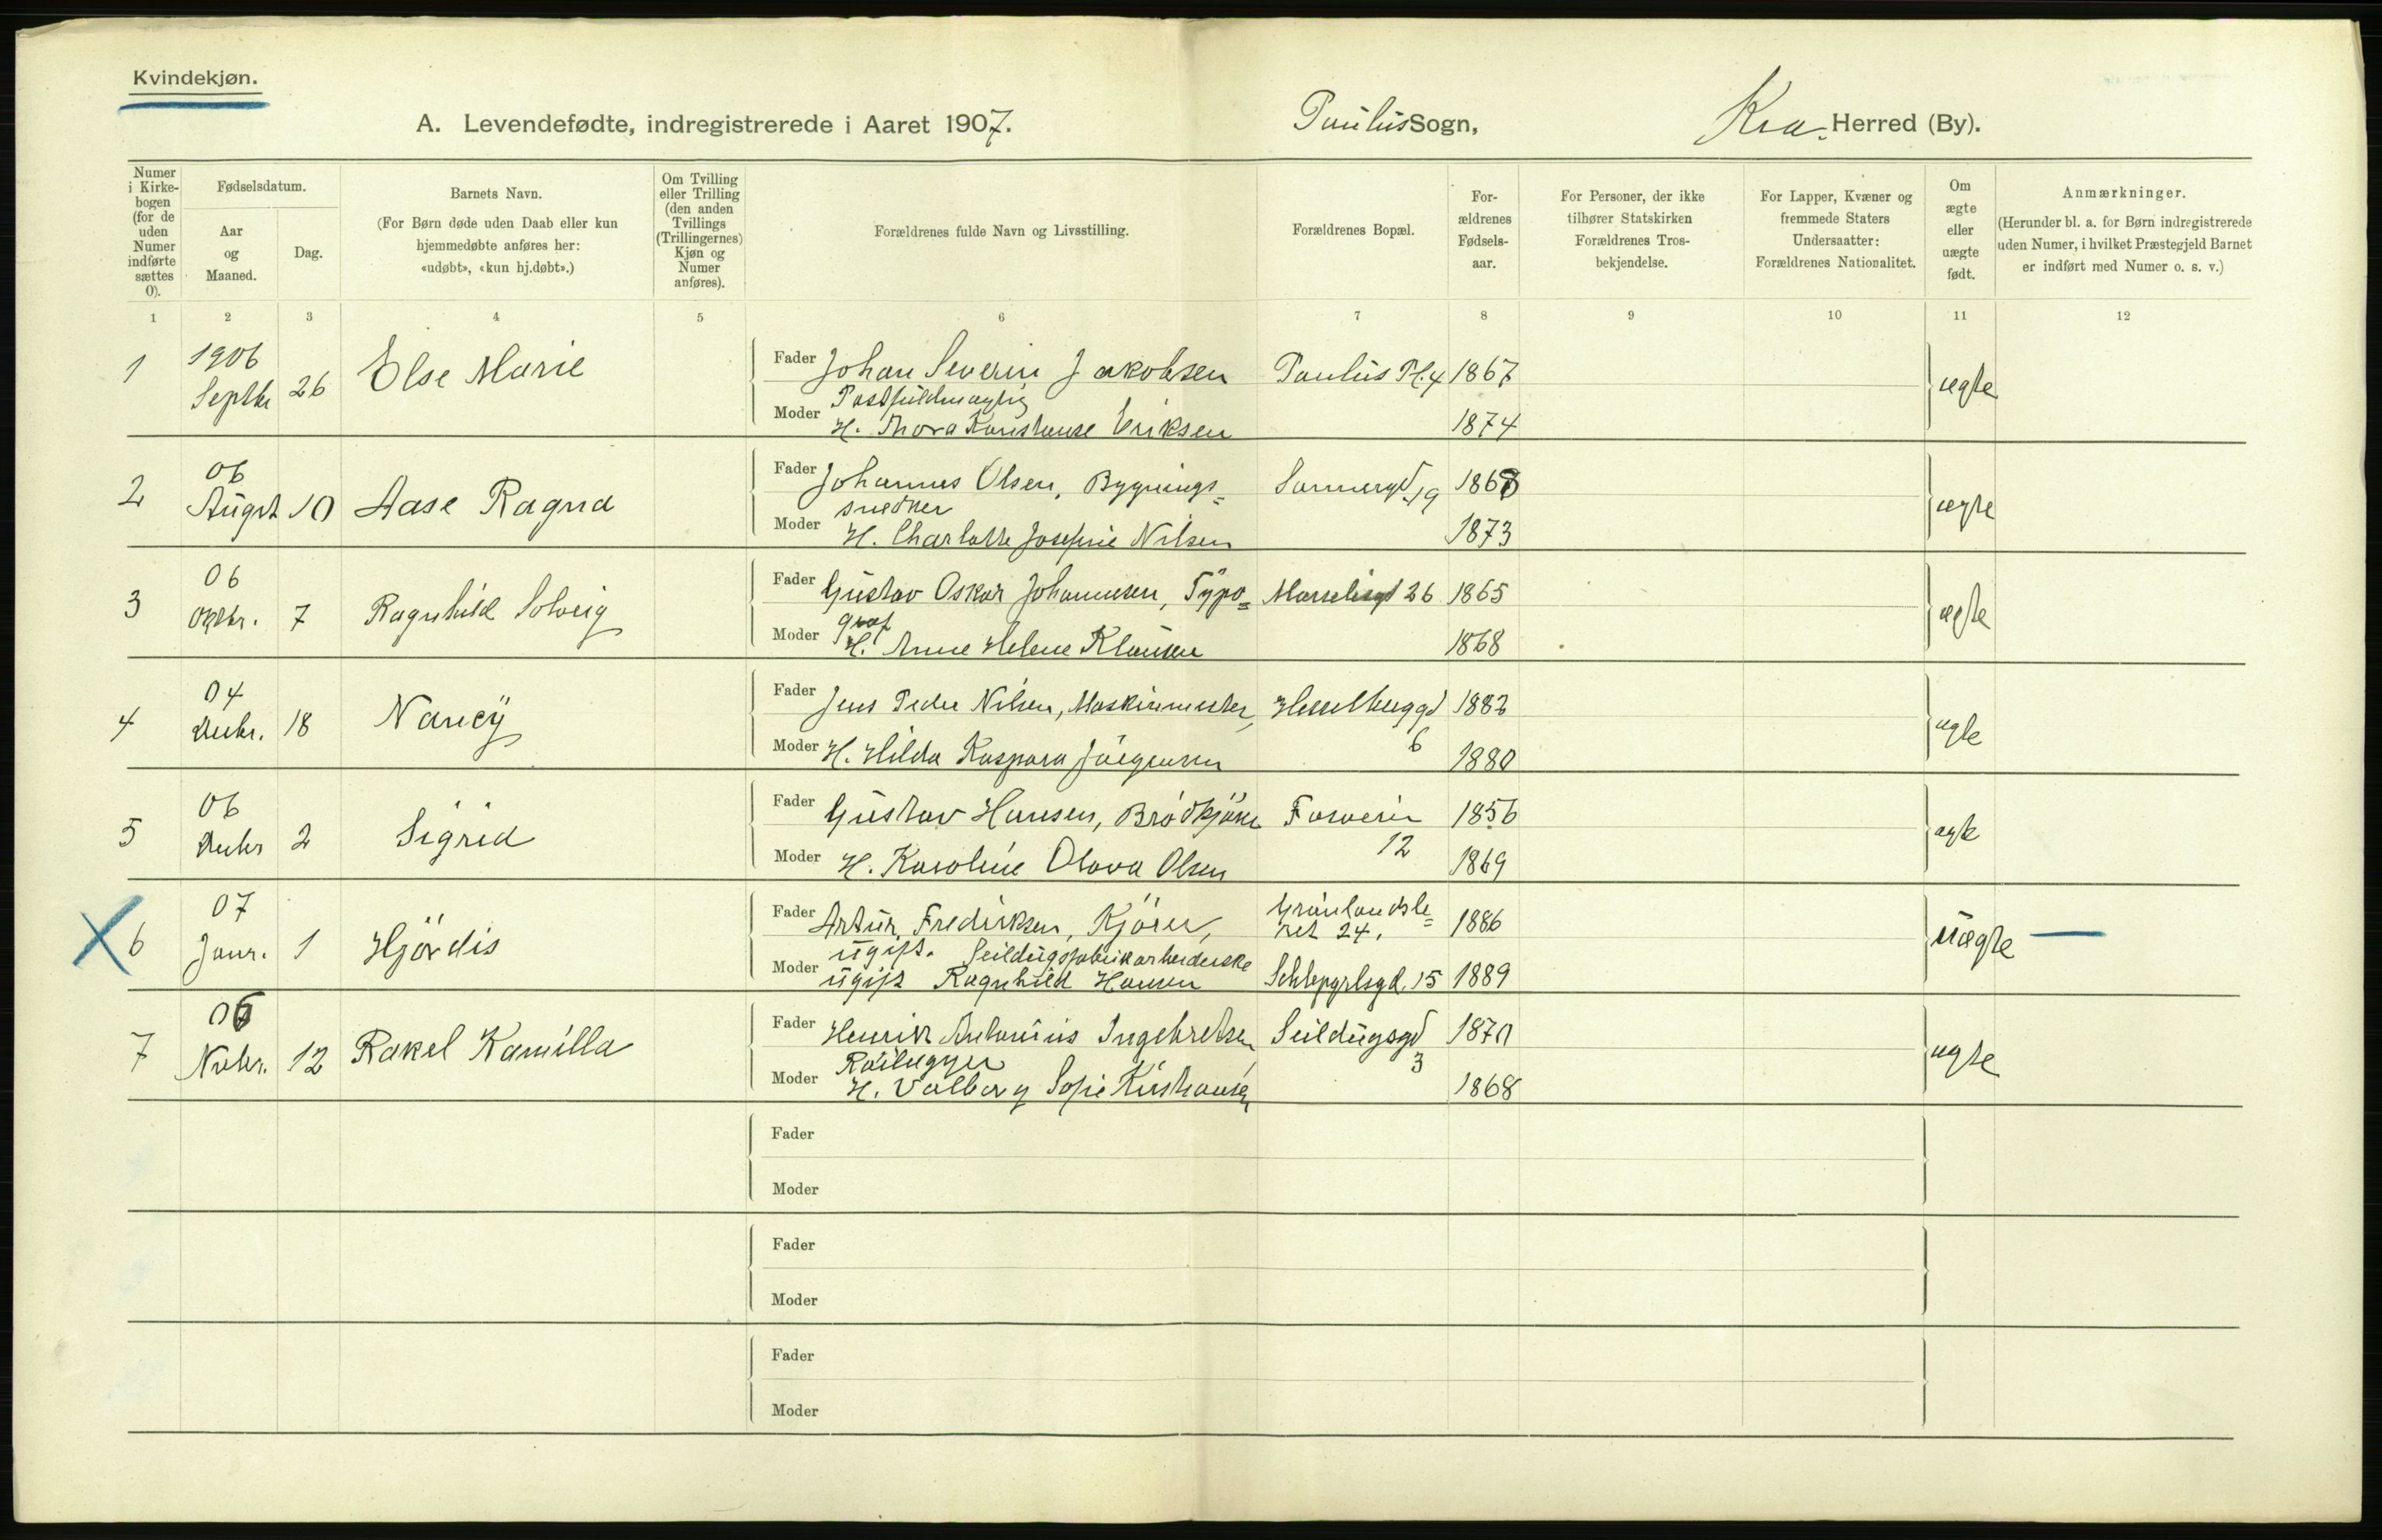 Kvindekjøn.
A. Levendefødte, indregistrerede i Aaret 1907.
Paulus Sogn,
Kra. Herred (By).
Numer i Kirke-bogen (for de uden Numer indførte sættes 0).
Fødselsdatum.
Aar og Maaned.
Dag.
Barnets Navn.
(For Børn døde uden Daab eller kun
hjemmedøbte anføres her:
«udøbt», «kun hj.døbt».)
Om Tvilling eller Trilling (den anden Tvillings (Trillingernes) Kjøn og Numer anføres).
Forældrenes fulde Navn og Livsstilling.
Forældrenes Bopæl.
For-ældrenes Fødsels-aar.
For Personer, der ikke
tilhører Statskirken
Forældrenes Tros-
bekjendelse.
For Lapper, Kvæner og
fremmede Staters
Undersaatter:
Forældrenes Nationalitet.
Om ægte eller uægte født.
Anmærkninger.
(Herunder bl. a. for Børn indregistrerede
uden Numer, i hvilket Præstegjeld Barnet
er indført med Numer o. s. v.)
1 2 3 4 5 6 7 8 9 10 11 12
1 1906 Septbr 26 Else Marie
Fader Johan Severin Jakobsen Paulus Pl. 4 1867 ægte
Postfuldmægtig
Moder H. Thora Konstanse Eriksen 1874
2 06 Augst 10 Aase Ragna
Fader Johannes Olsen, Bygnings= Sannergd 19 1868 ægte
snedker
Moder H. Charlotte Josefine Nilsen 1873
3 06 Oktbr. 7 Ragnhild Solveig
Fader Gustav Oskar Johannesen, Typo= 26 1865 ægte
graf
Moder H. Anne Helene Klausen 1868
4 04 Decbr. 18 Nancy
Fader Jens Peder Nilsen, Maskinmester, Hesselbuggd 1882 ægte
6
Moder H. Hilda Kaspara Jørgensen 1880
5 06 Decbr 2 Sigrid
Fader Gustav Hansen, Brødkjører 1856 ægte
12
Moder H. Karoline Olava Olsen 1869
6 07 Janr. 1 Hjørdis
Fader Artur Fredriksen, Kjører, Grønlandsle= 1886 uægte
ugift. ret 24,
Seildugsfabrikarbeiderske
Moder ugift Ragnhild Hansen Schleppegrlsgd. 15 1889
7 06 Novbr. 12 Rakel Kamilla
Fader Henrik Antonius Ingebretsen, Seildugsgd 1870 ægte
3
Moder H. Valborg Sofie Kristiansen 1868
Fader
Moder
Fader
Moder
Fader
Moder